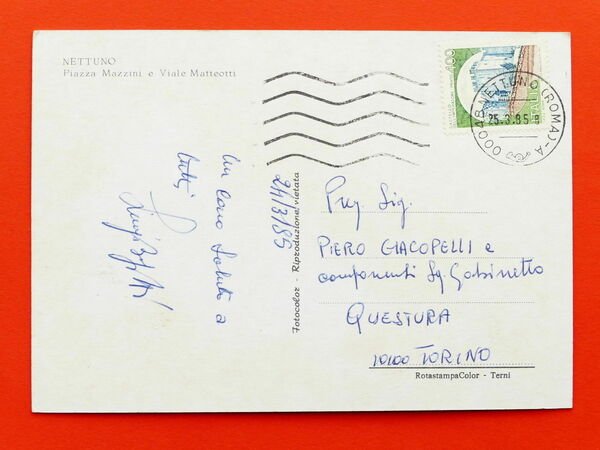 NETTUNO
Piazza Mazzini e Viale Matteotti
400
ITALIA
00048 NETTUNO (ROMA) - A
25.3.85
Un Caro Saluto a
tutti
24/3/85
Fotocolor - Riproduzione vietata
Preg. Sig.
PIERO GIACOPELLI e
componenti Sq. Gabinetto
QUESTURA
10100 TORINO
RotastampaColor - Terni